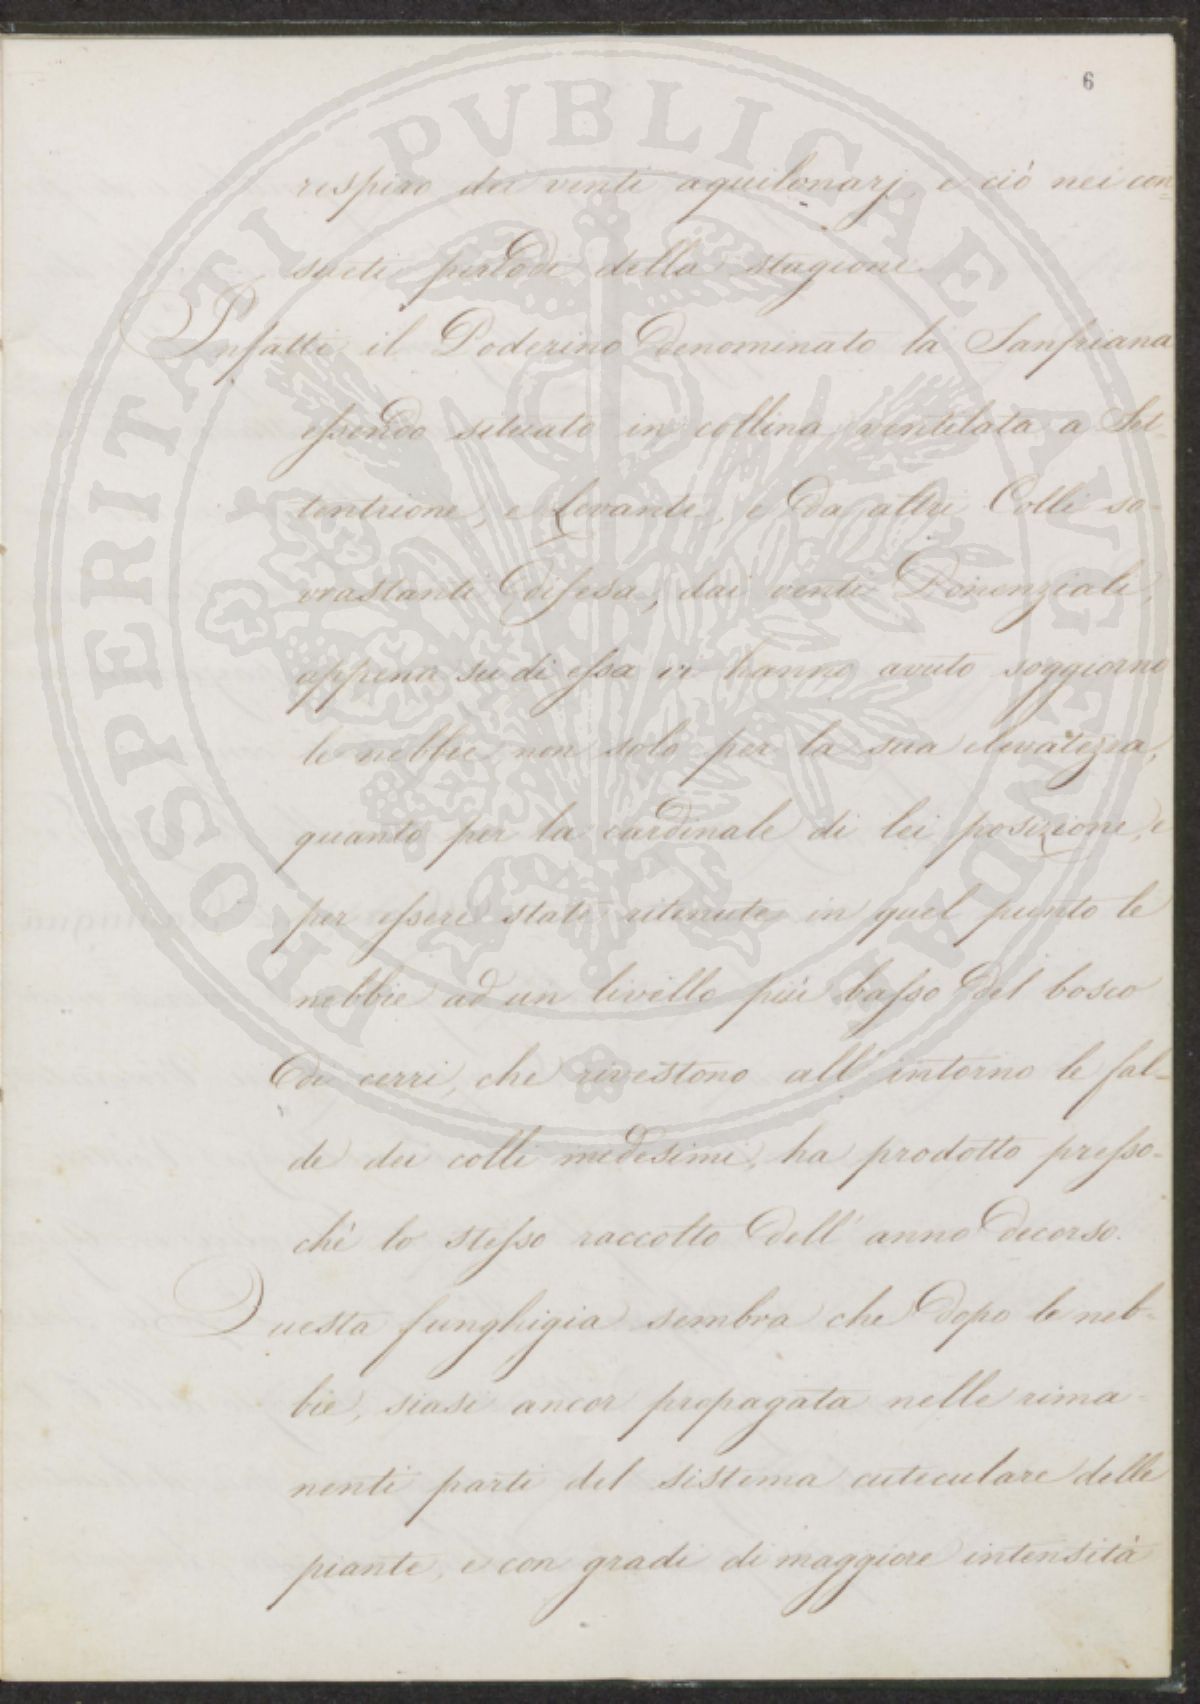 6
respiro dei venti aquilonarj, e ciò nei con=
sueti periodi della stagione.
Infatti il Poderino denominato la Sanfriana
essendo situato in collina ventilata a Set-
tentrione, e Levante, e da altri Colli so-
vrastanti difesa, dai venti Ponenziali,
appena su di essa vi hanno avuto soggiorno
le nebbie non solo per la sua elevatezza,
quanto per la cardinale di lei posizione, e
per essere state ritenute in quel punto le
nebbie ad un livello più basso del bosco
di cerri, che rivestono all' intorno le fal-
de dei colli medesimi, ha prodotto presso-
chè lo stesso raccolto dell' anno decorso.
Questa funghigia sembra che dopo le neb-
bie, siasi ancor propagata nelle rima-
nenti parti del sistema cuteculare delle
piante, e con gradi di maggiore intensità
PROSPERITATI PVBLICAE AVGENDAE